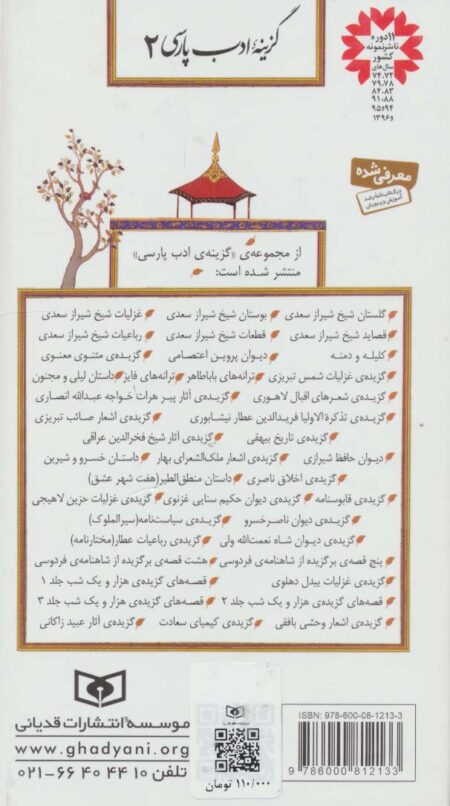 گزینهٔ ادب پارسی ۲
۱۱ دوره
ناشر نمونه
کشور
سال‌های
۷۴،۷۲
۷۹،۷۸
۸۴،۸۳
۹۱،۸۸
۹۴و۹۵
و۱۳۹۶
معرفی شده
در کتاب‌نامه رشد
آموزش و پرورش
از مجموعه‌ی «گزینه‌ی ادب پارسی»
منتشر شده است:
گلستان شیخ شیراز سعدی بوستان شیخ شیراز سعدی غزلیات شیخ شیراز سعدی
قصاید شیخ شیراز سعدی قطعات شیخ شیراز سعدی رباعیات شیخ شیراز سعدی
کلیله و دمنه دیوان پروین اعتصامی گزیده‌ی مثنوی معنوی
گزیده‌ی غزلیات شمس تبریزی ترانه‌های باباطاهر ترانه‌های فایز داستان لیلی و مجنون
گزیده‌ی شعرهای اقبال لاهوری گزیده‌ی آثار پیر هرات خواجه عبدالله انصاری
گزیده‌ی تذکرة الاولیا فریدالدین عطار نیشابوری گزیده‌ی اشعار صائب تبریزی
گزیده‌ی تاریخ بیهقی گزیده‌ی آثار شیخ فخرالدین عراقی
دیوان حافظ شیرازی گزیده‌ی اشعار ملک‌الشعرای بهار داستان خسرو و شیرین
گزیده‌ی اخلاق ناصری داستان منطق‌الطیر(هفت شهر عشق)
گزیده‌ی قابوسنامه گزیده‌ی دیوان حکیم سنایی غزنوی گزیده‌ی غزلیات حزین لاهیجی
گزیده‌ی دیوان ناصرخسرو گزیده‌ی سیاست‌نامه(سیرالملوک)
گزیده‌ی دیوان شاه نعمت‌الله ولی گزیده‌ی رباعیات عطار(مختارنامه)
پنج قصه‌ی برگزیده از شاهنامه‌ی فردوسی هشت قصه‌ی برگزیده از شاهنامه‌ی فردوسی
گزیده‌ی غزلیات بیدل دهلوی قصه‌های گزیده‌ی هزار و یک شب جلد ۱
قصه‌های گزیده‌ی هزار و یک شب جلد ۲ قصه‌های گزیده‌ی هزار و یک شب جلد ۳
گزیده‌ی اشعار وحشی بافقی گزیده‌ی کیمیای سعادت گزیده‌ی آثار عبید زاکانی
موسسه انتشارات قدیانی
www.ghadyani.org
تلفن ۱۰ ۴۴ ۴۰ ۶۶-۰۲۱
۱۱۰/۰۰۰ تومان
ISBN: 978-600-08-1213-3
9 786000 812133